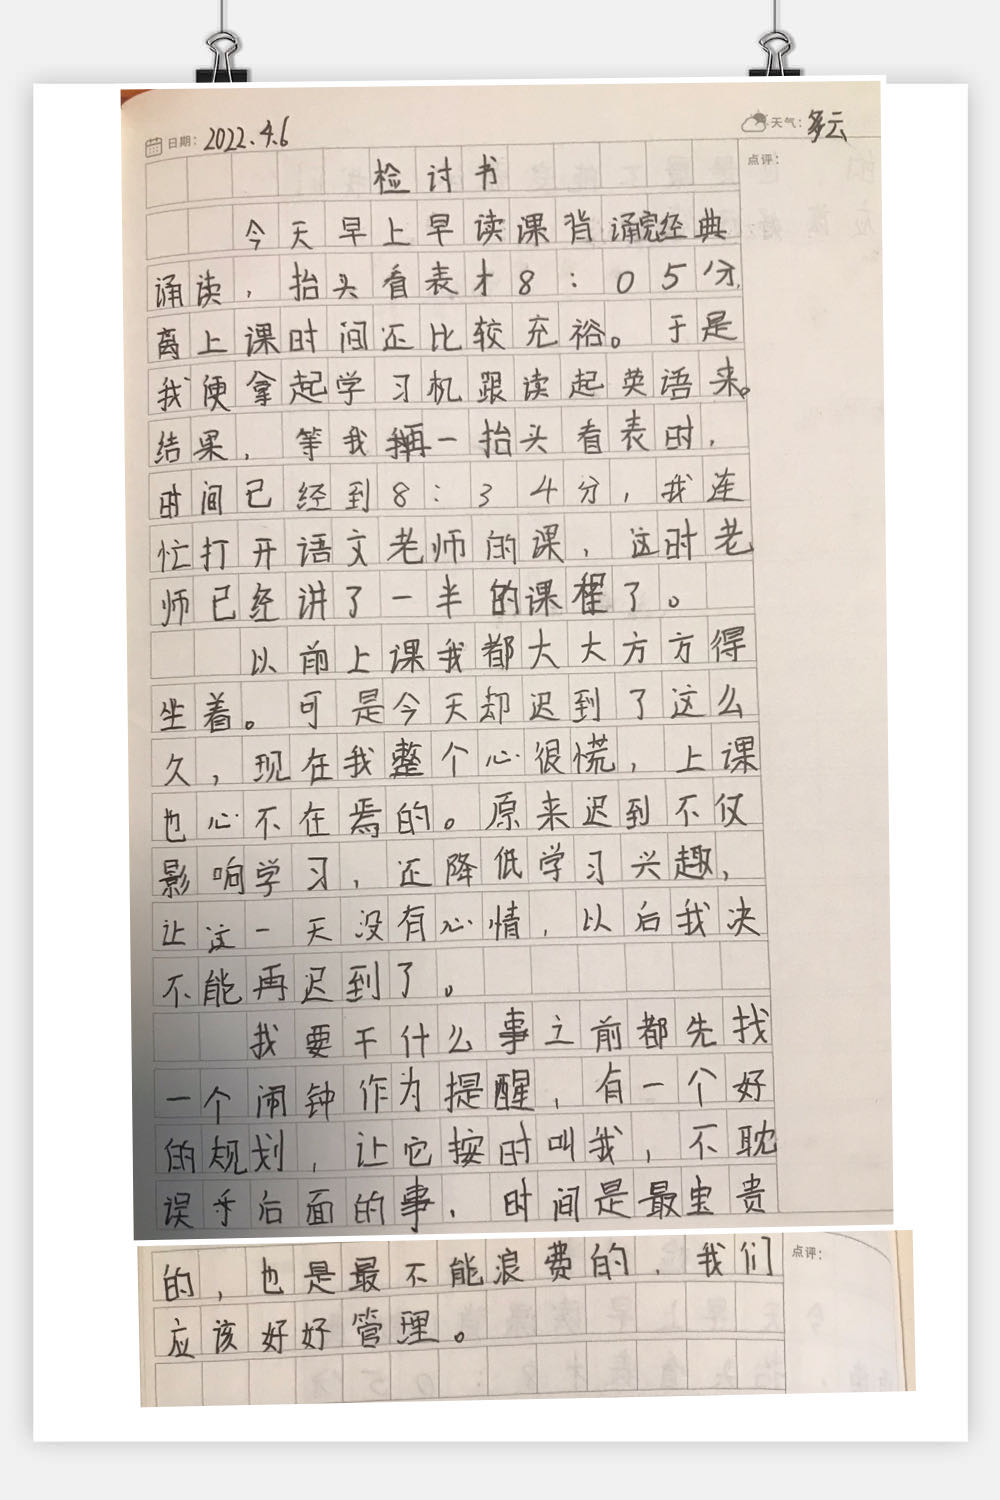 日期： 2022.4.6 天气： 多云
点评：
检讨书
今天早上早读课背诵完经典
诵读，抬头看表才8：05分，
离上课时间还比较充裕。于是
我便拿起学习机跟读起英语来。
结果，等我再一抬头看表时，
时间已经到8：34分，我连
忙打开语文老师的课，这时老
师已经讲了一半的课程了。
以前上课我都大大方方得
坐着。可是今天却迟到了这么
久，现在我整个心很慌，上课
也心不在焉的。原来迟到不仅
影响学习，还降低学习兴趣，
让这一天没有心情，以后我决
不能再迟到了。
我要干什么事之前都先找
一个闹钟作为提醒，有一个好
的规划，让它按时叫我，不耽
误手后面的事，时间是最宝贵
的，也是最不能浪费的，我们
点评：
应该好好管理。